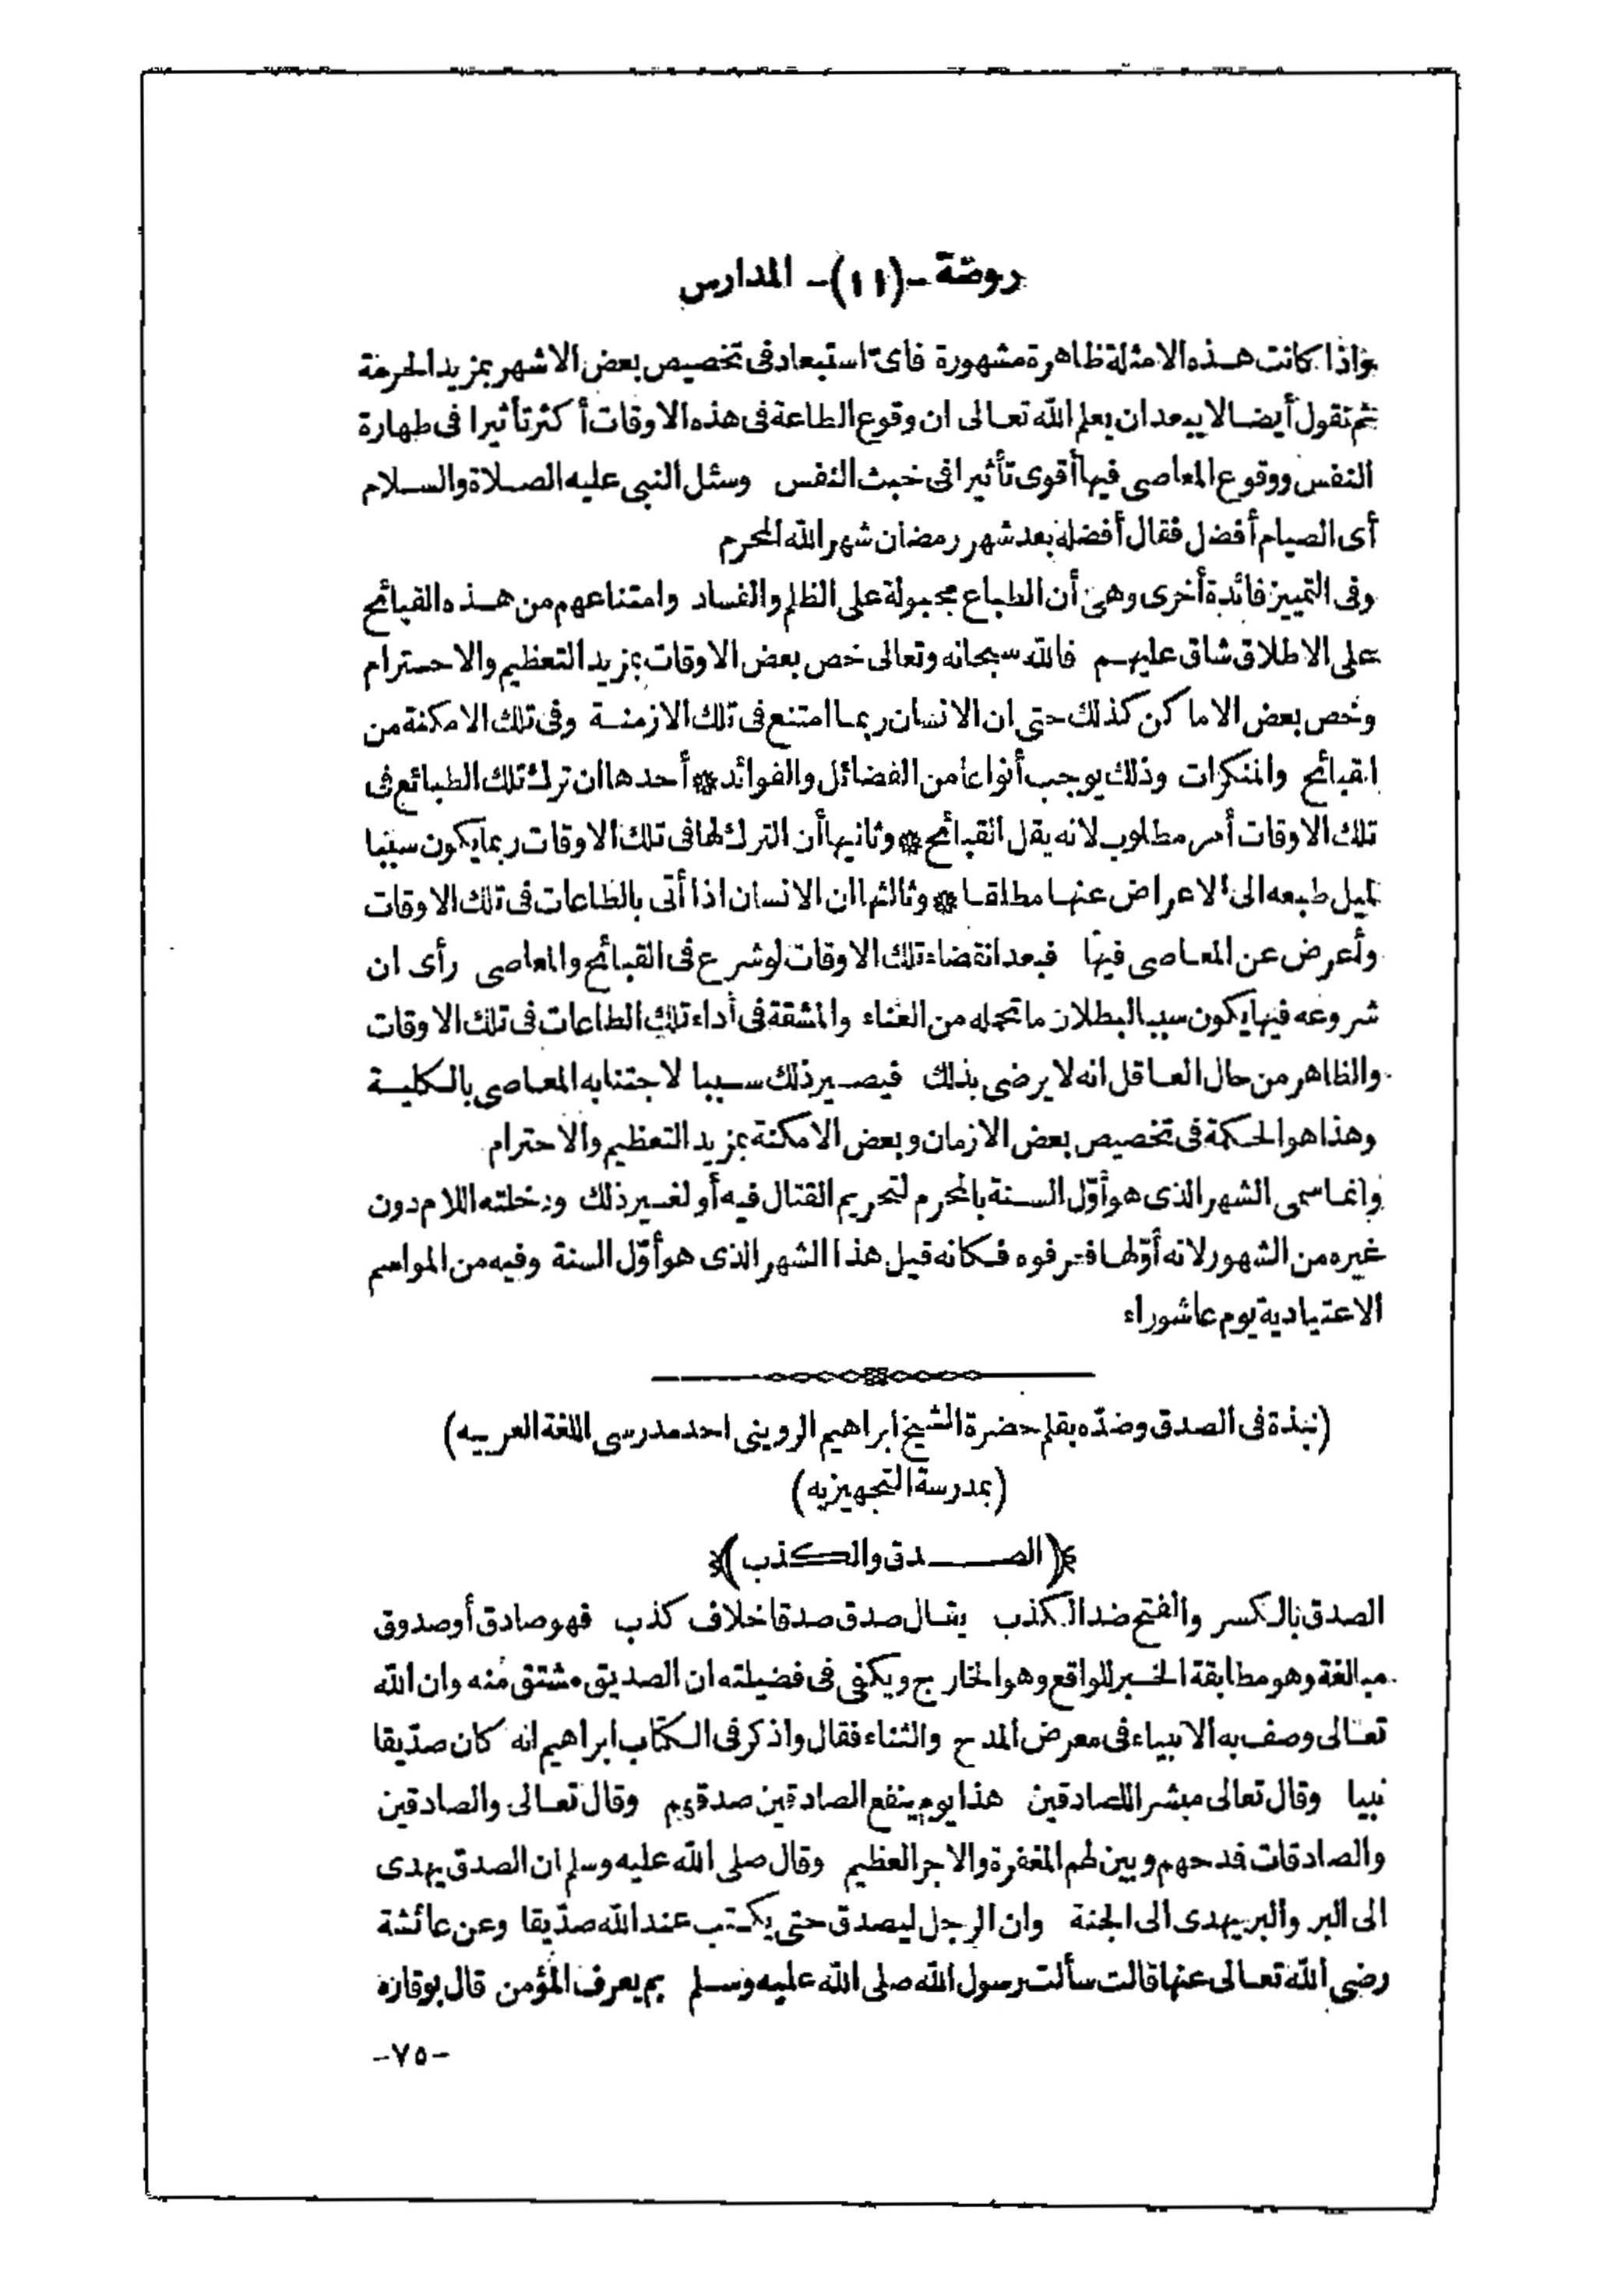 روضة -(١١)- المدارس
واذا كانت هذه الامثلة ظاهرة مشهورة فاىّ استبعاد فى تخصيص بعض الاشهر بمزيد الحرمة
ثم نقول أيضا لا يبعد ان يعلم الله تعالى ان وقوع الطاعة فى هذه الاوقات أكثر تأثيرا فى طهارة
النفس ووقوع المعاصى فيها أقوى تأثيرا فى خبث النفس وسئل النبى عليه الصلاة والسلام
أى الصيام أفضل فقال أفضله بعد شهر رمضان شهر الله المحرم
وفى التمييز فائدة أخرى وهى أن الطباع مجبولة على الظلم والفساد وامتناعهم من هذه القبائح
على الاطلاق شاق عليهم فالله سبحانه وتعالى خص بعض الاوقات بمزيد التعظيم والاحترام
وخص بعض الاماكن كذلك حتى ان الانسان ربما امتنع فى تلك الازمنة وفى تلك الامكنة من
القبائح والمنكرات وذلك يوجب أنواعا من الفضائل والفوائد * أحدها ان ترك تلك الطبائع فى
تلك الاوقات أمر مطلوب لانه يقل القبائح * وثانيها أن الترك لها فى تلك الاوقات ربما يكون سببا
لميل طبعه الى الاعراض عنها مطلقا * وثالثها ان الانسان اذا أتى بالطاعات فى تلك الاوقات
وأعرض عن المعاصى فيها فبعد انقضاء تلك الاوقات لو شرع فى القبائح والمعاصى رأى ان
شروعه فيها يكون سببا لبطلان ما تحمله من العناء والمشقة فى أداء تلك الطاعات فى تلك الاوقات
والظاهر من حال العاقل انه لا يرضى بذلك فيصير ذلك سببا لاجتنابه المعاصى بالكلية
وهذا هو الحكمة فى تخصيص بعض الازمان وبعض الامكنة بمزيد التعظيم والاحترام
وانما سمى الشهر الذى هو أوّل السنة بالمحرم لتحريم القتال فيه أو لغير ذلك ودخلته اللام دون
غيره من الشهور لانه أوّلها فعرفوه فكانه قيل هذا الشهر الذى هو أوّل السنة وفيه من المواسم
الاعتيادية يوم عاشوراء
(نبذة فى الصدق وضدّه بقلم حضرة الشيخ ابراهيم الروينى احد مدرسى اللغة العربيه)
(بمدرسة التجهيزيه)
*(الصدق والكذب)*
الصدق بالكسر والفتح ضد الكذب يقال صدق صدقا خلاف كذب فهو صادق أو صدوق
مبالغة وهو مطابقة الخبر للواقع وهو الخارج ويكفى فى فضيلته ان الصديق مشتق منه وان الله
تعالى وصف به الانبياء فى معرض المدح والثناء فقال واذكر فى الكتاب ابراهيم انه كان صدّيقا
نبيا وقال تعالى مبشرا للصادقين هذا يوم ينفع الصادقين صدقهم وقال تعالى والصادقين
والصادقات فمدحهم وبين لهم المغفرة والاجر العظيم وقال صلى الله عليه وسلم ان الصدق يهدى
الى البر والبر يهدى الى الجنة وان الرجل ليصدق حتى يكتب عند الله صدّيقا وعن عائشة
رضى الله تعالى عنها قالت سألت رسول الله صلى الله عليه وسلم بم يعرف المؤمن قال بوقاره
-٧٥-